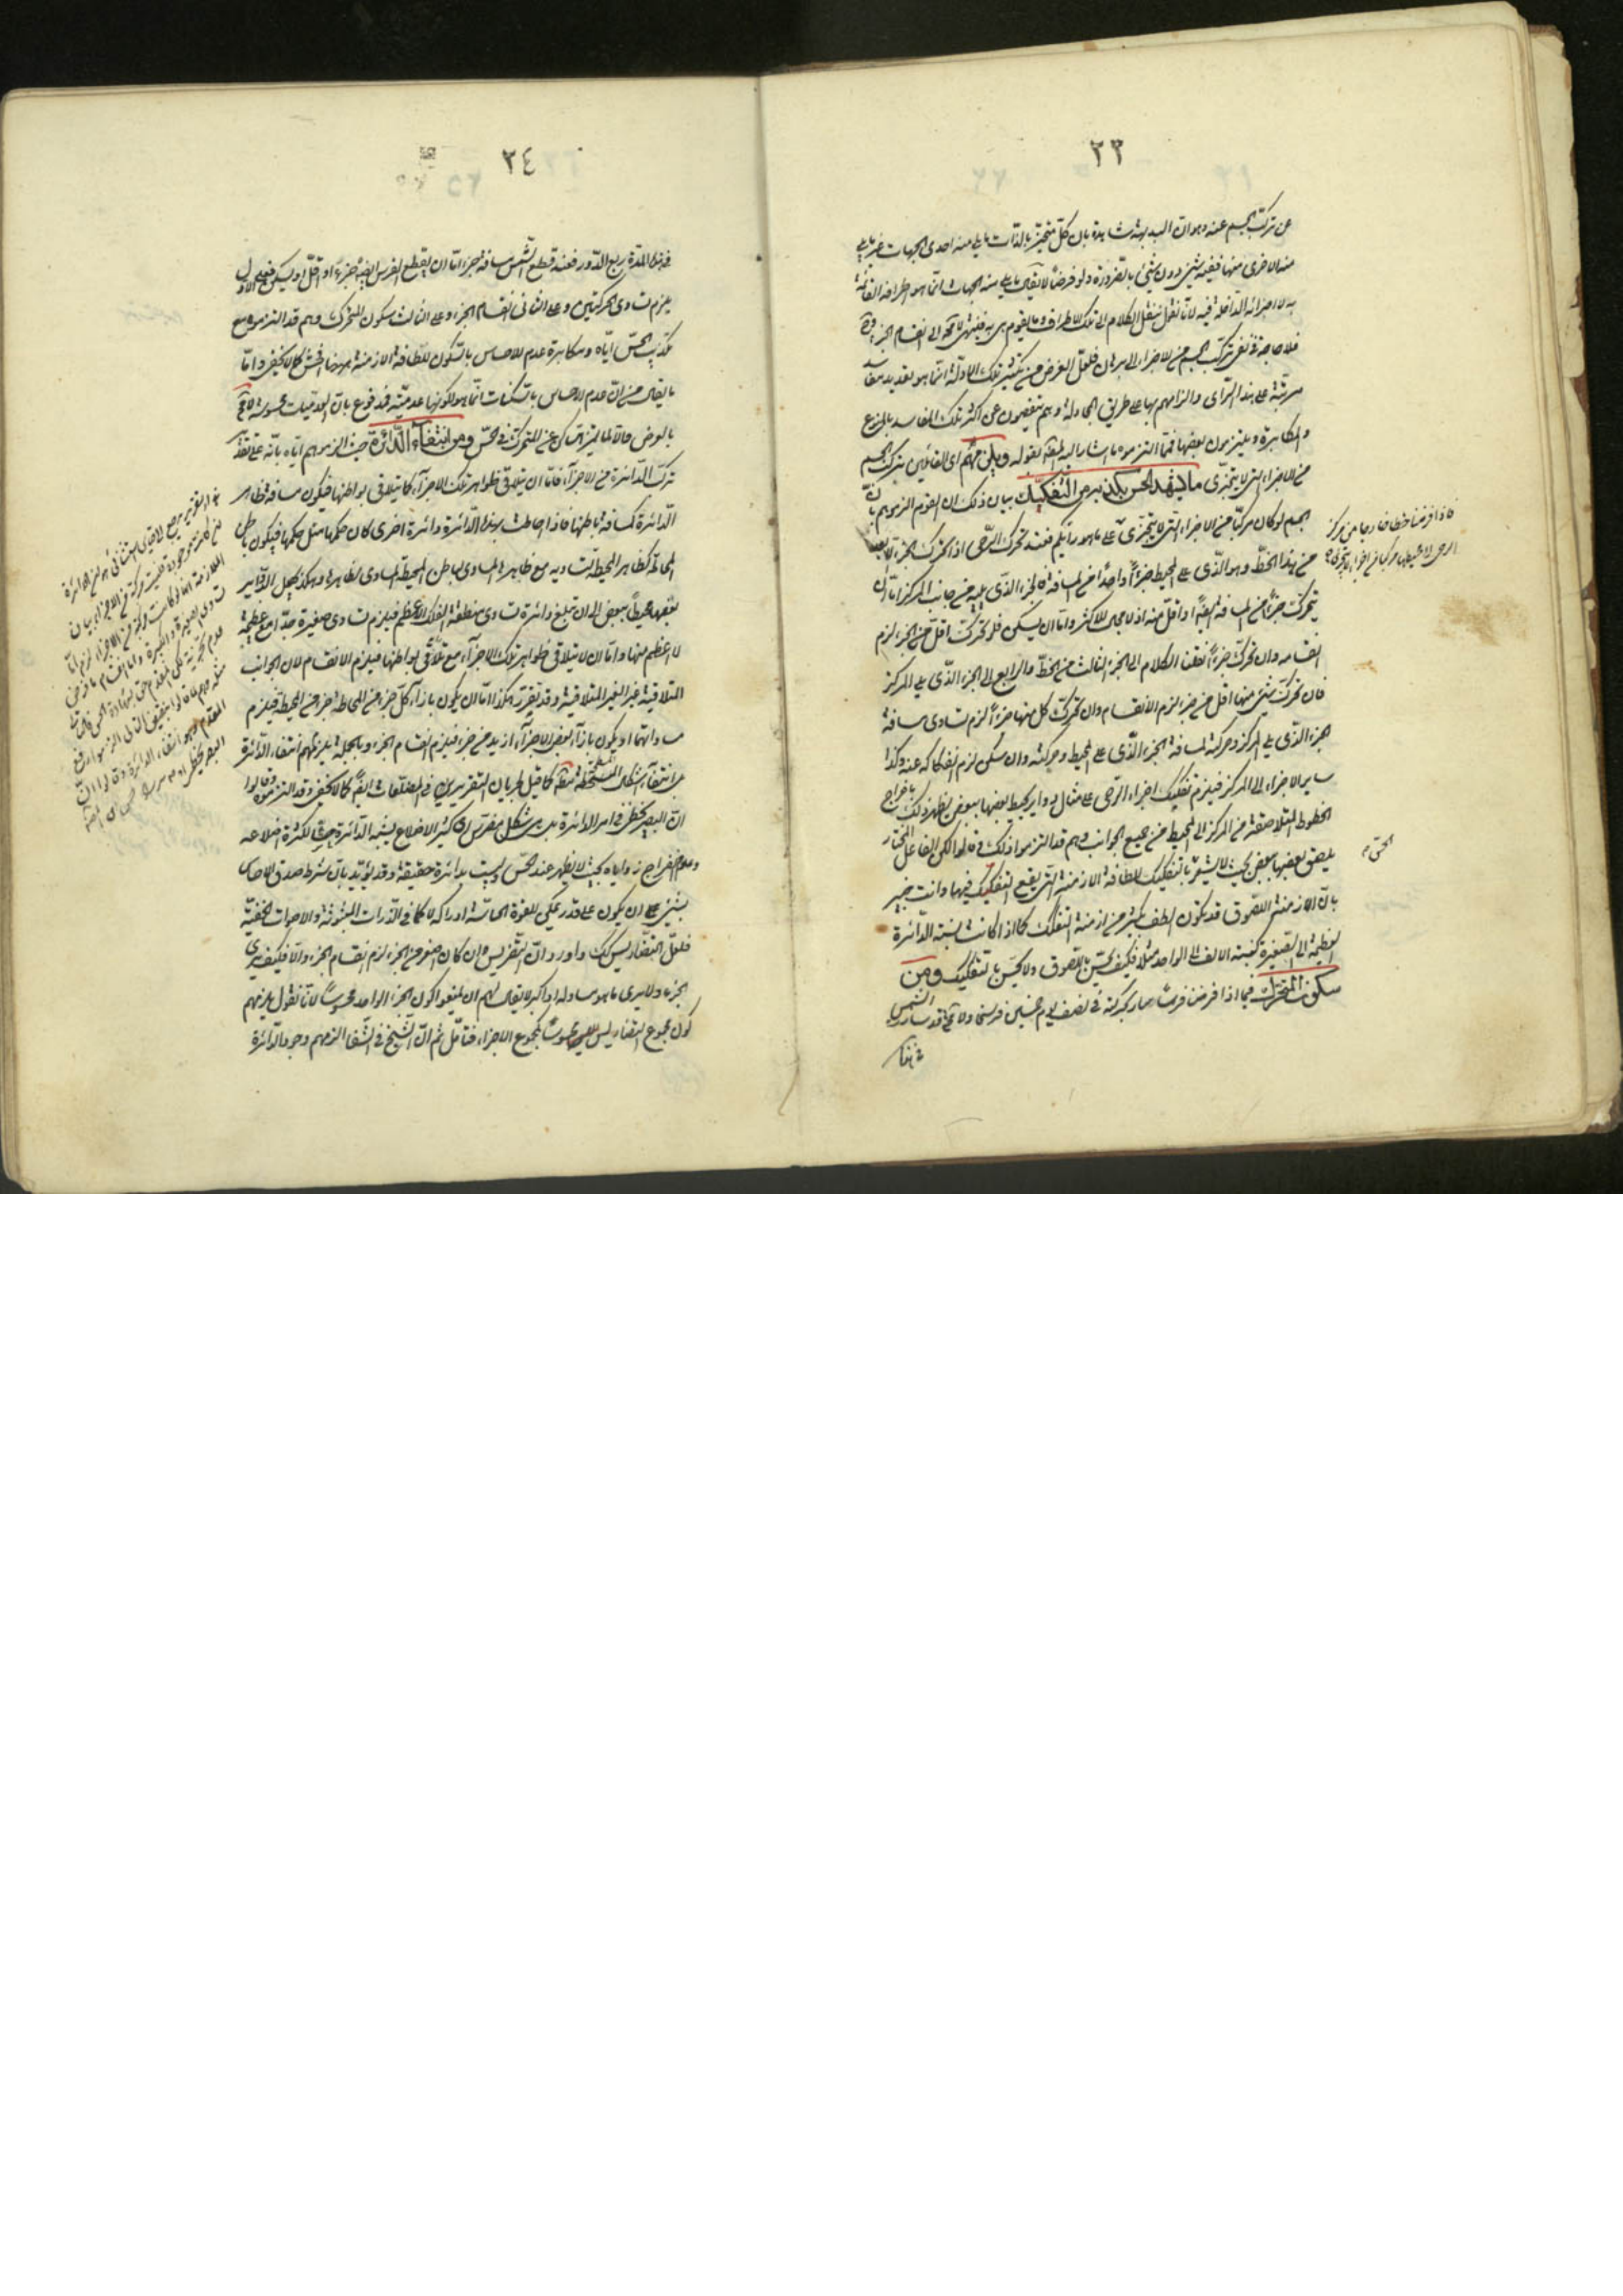 ٢٣
عن تركب الجسم عنه وهو ان البديهة شاهدة بان كل متحيز بالذات ما يلي منه احدى الجهات غير ما يلي
منه الاخرى منها ففيه شيئ دون شيئ بالضرورة ولو فرضا لا يقال ما يلي منه الجهات انما هو اطرافه القائمة
به لا اجزائه الداخلة فيه لانا نقول ننقل الكلام الى تلك الاطراف وما يقوم هي به فينتهي لا محة الى انقسام الجزء
فلا حاجة في نفي تركب الجسم من الاجزاء الى برهان فلعل الغرض من تكثير تلك الادلة انما هو تعديد مفاسد
مرتبة على هذا الراى والزامهم بها على طريق المجادلة وهم يتفصون عن اكثر تلك المفاسد بالمنع
والمكابرة ويلتزمون بعضها فمما التزموه ما اشار اليه المصنف بقوله ويلزمهم اى القائلين بتركب الجسم
من الاجزاء التي لا يتجزى ما يشهد الحس بكذبه من التفكيك بيان ذلك ان القوم التزموا بان
الجسم لو كان مركبا من الاجزاء التي لا يتجزى على ما هو رأيكم فعند تحرك الرحى اذا تحرك الجزء الابعد
من هذا الخط وهو الذى على المحيط جزءا واحدا من المسافة فالجزء الذى يليه من جانب المركز اما ان
يتحرك جزءا من المسافة ايضا او اقل منه اذ لا مجال للاكثر واما ان يسكن فلو تحرك اقل من الجزء لزم
انقسامه وان تحرك جزءا نقلنا الكلام الى الجزء الثالث من الخط والرابع الى الجزء الذى يلي المركز
فان تحرك شئ منها اقل من جزء لزم الانقسام وان تحرك كل منها جزءا لزم تساوى مسافة
الجزء الذى يلي المركز وحركته لمسافة الجزء الذى على المحيط وحركته وان سكن لزم انفكاكه عنه وكذا
ساير الاجزاء الى المركز فيلزم تفكيك اجزاء الرحى على مثال دواير يحيط بعضها ببعض يظهر ذلك باخراج
الخطوط المتلاصقة من المركز الى المحيط من جميع الجوانب وهم قد التزموا ذلك وقالوا لكن الفاعل المختار
يلصق بعضها ببعض بحيث لا يشعر بالتفكيك للطافة الازمنة التي يقع التفكيك فيها وانت خبير
بان الازمنة اللصوق قد يكون الطف بكثير من ازمنة التفكك كما اذا كانت نسبة الدائرة
العظيمة الى الصغيرة كنسبة الالف الى الواحد مثلا فكيف يحس باللصوق ولا يحس بالتفكيك ومن
سكون المتحرك فيما اذا فرضنا فرسا سار بحركته في نصف يوم خمسين فرسخا ولا محة قد سارت الشمس
فاذا فرضنا خطا خارجا من مركز
الرحى الى محيطها مركبا من اجزاء لا يتجزى
الحس
٢٤
في هذه المدة ربع الدور فعند قطع الشمس مسافة جزء اما ان يقطع الفرس ايضا جزءا او اقل او يسكن فعلى الاول
يلزم تساوى الحركتين وعلى الثانى انقسام الجزء وعلى الثالث سكون المتحرك وهم قد التزموه مع
تكذيب الحس اياه ومكابرة عدم الاحساس بالسكون للطافة الازمنة ههنا افحش كما لا يخفى واما
ما يقال من ان عدم الاحساس بالسكنات انما هو لكونها عدمية فمدفوع بان العدميات محسوسة
بالعرض والا لما ليتميز الساكن عن المتحرك في الحس ومن انتفاء الدائرة حيث الزموهم اياه بانه على تقدير
تركب الدائرة من الاجزاء فاما ان يتلاقى ظواهر تلك الاجزاء كما يتلاقى بواطنها فيكون مسافة ظاهر
الدائرة كمسافة باطنها فاذا احاطت بهذه الدائرة دائرة اخرى كان حكمها مثل حكمها فيكون باطن
المحاطة كظاهر المحيطة لتساويه مع ظاهرة المساوى لباطن المحيطة المساوى لظاهرها وهكذا يجعل الدواير
بعضها محيطا ببعض الى ان تبلغ دائرة تساوى منطقة الفلك الاعظم فيلزم تساوى صغيرة جدا مع عظيمة
لا اعظم منها واما ان لا يتلاقى ظواهر تلك الاجزاء مع تلاقي بواطنها فيلزم الانقسام لان الجوانب
المتلاقية غير الغير المتلاقية وقد تقرر هكذا اما ان يكون بازاء كل جزء من المحاطة جزء من المحيطة فيلزم
مساواتهما او يكون بازاء بعض الاجزاء ازيد من جزء فيلزم انقسام الجزء وبالجملة يلزمهم انتفاء الدائرة
بل انتفاء اشكال المسطحة كما قيل لجريان التقريرين في المضلعات ايضا كما لا يخفى وقد التزموه وقالوا
ان البصر يخطئ في امر الدائرة بل هي شكل مضرس كثير الاضلاع يشبه الدائرة حسا لكثرة اضلاعه
وعدم انفراج زواياه بحيث لا يظهر عند الحس وليست بدائرة حقيقة وقد يؤيد بان شرط صدق الاحساس
بشئ على ان يكون على قدر يمكن للقوة الحاسة ادراكه لا كما في الذرات المبثوثة والاصوات الخفية
فلعل التضاريس كك واورد ان التضريس ان كان اصغر من الجزء لزم انقسام الجزء والا فكيف يرى
الجزء ولا يرى ما هو مساو له او اكبر لا يقال لهم ان يمنعوا كون الجزء الواحد محسوسا لانا نقول يلزمهم
كون مجموع التضاريس محسوسا كمجموع الاجزاء فتأمل ثم ان الشيخ في الشفا الزمهم وجود الدائرة